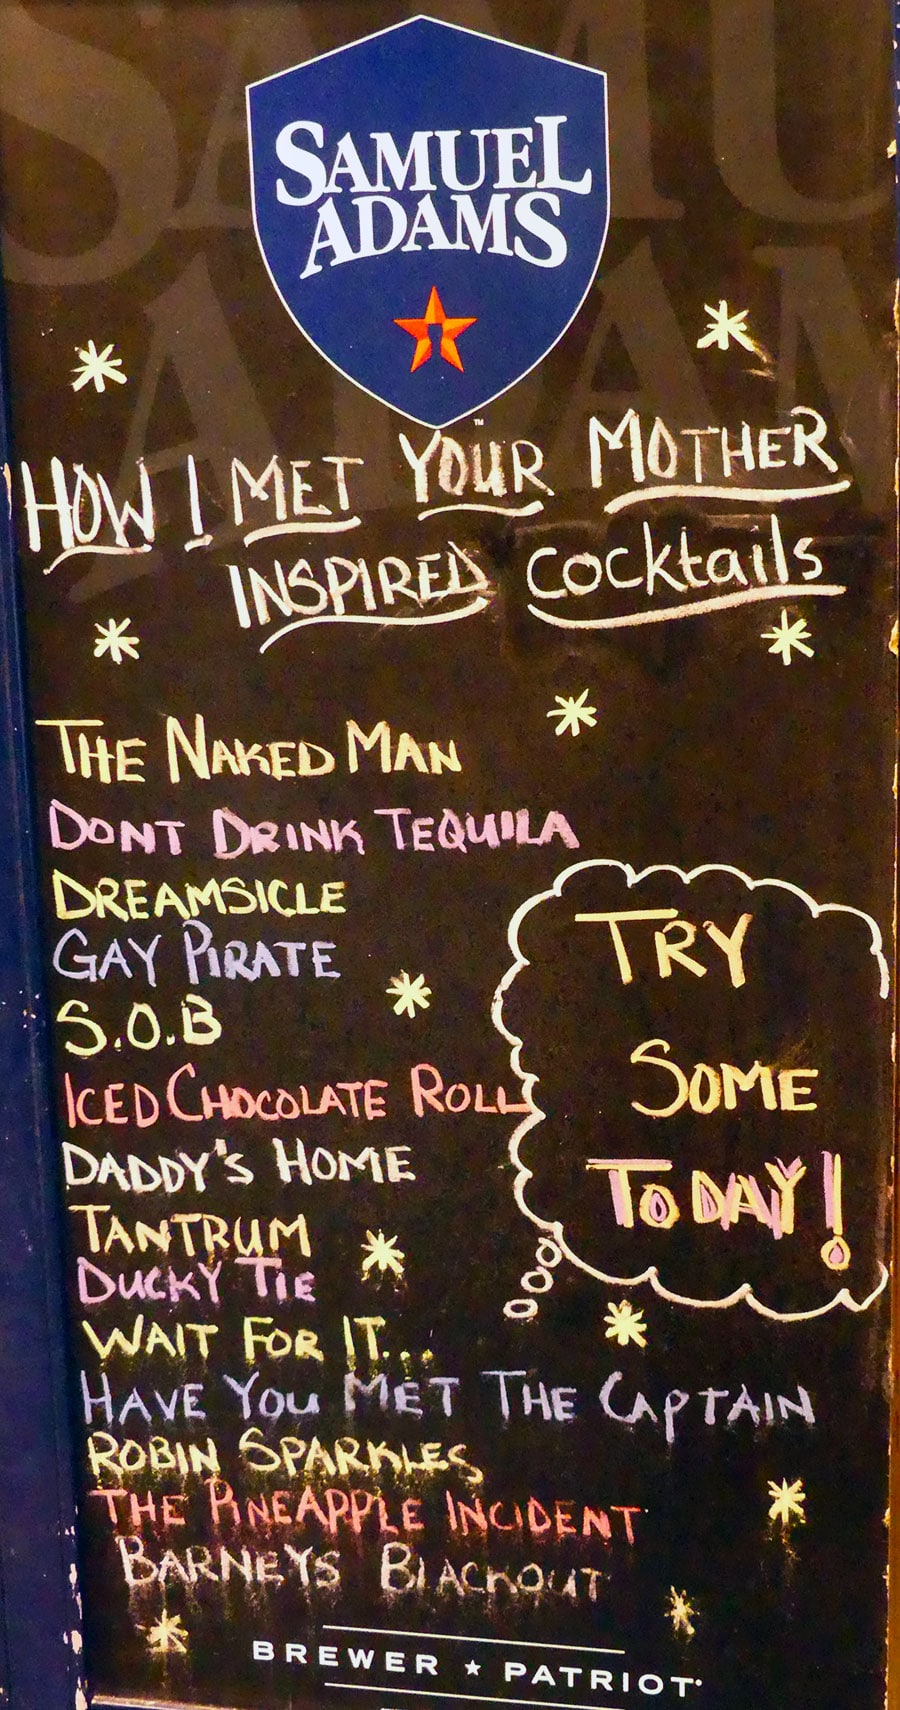 SAMUEL
ADAMS
™
HOW I MET YOUR MOTHER
INSPIRED cocktails
THE NAKED MAN
DONT DRINK TEQUILA
DREAMSICLE
GAY PIRATE
S.O.B
ICED CHOCOLATE ROLL
DADDY'S HOME
TANTRUM
DUCKY TIE
WAIT FOR IT...
HAVE YOU MET THE CAPTAIN
ROBIN SPARKLES
THE PINEAPPLE INCIDENT
BARNEYS BLACKOUT
TRY
SOME
TODAY!
BREWER ★ PATRIOT